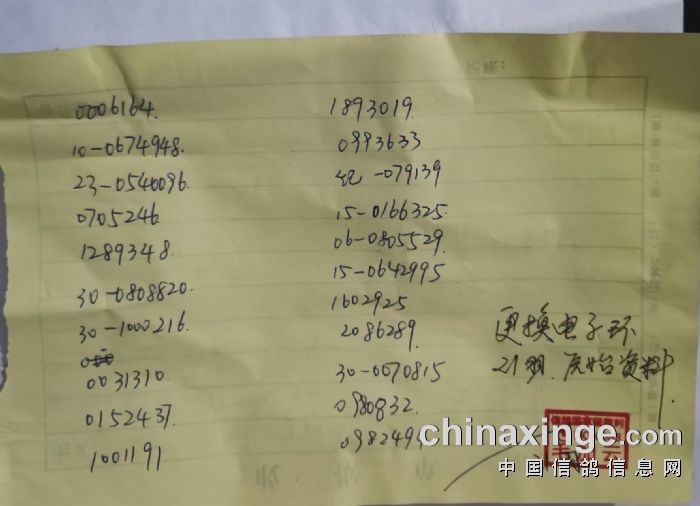 0006164.
10-0674948.
23-0540096.
0705246
1289348.
30-0808820.
30-1000216.
0031310.
0152437.
1001191
1893019.
0993633
纪-079139
15-0166325.
06-0805529.
15-0642995
1602925
2086289.
30-0070815
0980832.
098249
更换电子环
21羽.原始资料
chinaxinge.com
中国信鸽信息网